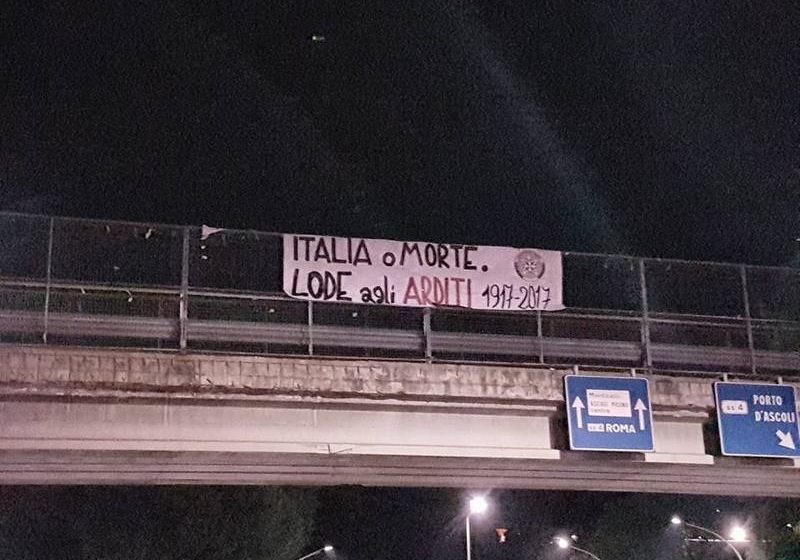 ITALIA o MORTE.
LODE agli ARDITI 1917-2017
ASCOLI PICENO
centro
SS 4 ROMA
SS 4
PORTO
D'ASCOLI